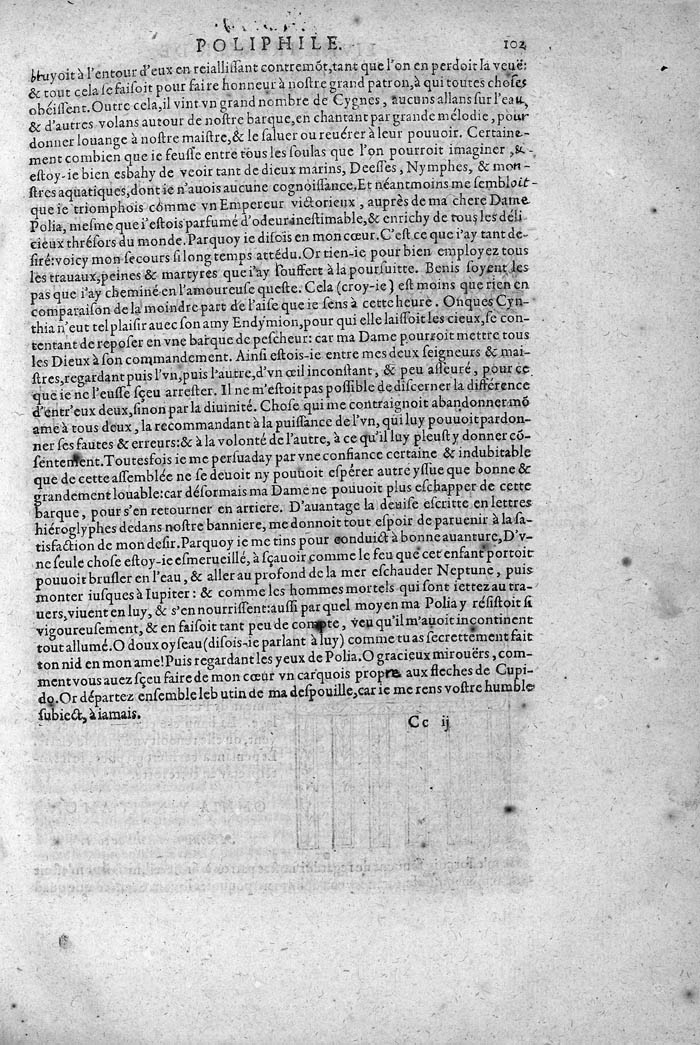 POLIPHILE. 102
bruyoit à l'entour d'eux en reiallissant contremõt, tant que l'on en perdoit la veuë:
& tout cela se faisoit pour faire honneur à nostre grand patron, à qui toutes choses
obéissent. Outre cela, il vint vn grand nombre de Cygnes, aucuns allans sur l'eau,
& d'autres volans autour de nostre barque, en chantant par grande mélodie, pour
donner louange à nostre maistre, & le saluer ou reuérer à leur pouuoir. Certaine-
ment combien que ie feusse entre tous les soulas que l'on pourroit imaginer, &
estoy-ie bien esbahy de veoir tant de dieux marins, Deesses, Nymphes, & mon-
stres aquatiques, dont ie n'auois aucune cognoissance, Et néantmoins me sembloit
que ie triomphois cõme vn Empereur victorieux, auprès de ma chere Dame
Polia, mesme que i'estois parfumé d'odeur inestimable, & enrichy de tous les déli
cieux thrésors du monde. Parquoy ie disois en mon cœur. C'est ce que i'ay tant de-
siré: voicy mon secours si long temps attédu. Or tien-ie pour bien employez tous
les trauaux, peines & martyres que i'ay souffert à la poursuitte. Benis soyent les
pas que i'ay cheminé en l'amoureuse queste. Cela (croy-ie) est moins que rien en
comparaison de la moindre part de l'aise que ie sens à cette heure. Onques Cyn-
thia n'eut tel plaisir auec son amy Endymion, pour qui elle laissoit les cieux, se con-
tentant de reposer en vne barque de pescheur: car ma Dame pourroit mettre tous
les Dieux à son commandement. Ainsi estois-ie entre mes deux seigneurs & mai-
stres, regardant puis l'vn, puis l'autre, d'vn œil inconstant, & peu asseuré, pour ce
que ie ne l'eusse sçeu arrester. Il ne m'estoit pas possible de discerner la différence
d'entr'eux deux, sinon par la diuinité. Chose qui me contraignoit abandonner mõ
ame à tous deux, la recommandant à la puissance de l'vn, qui luy pouuoit pardon-
ner ses fautes & erreurs: & à la volonté de l'autre, à ce qu'il luy pleust y donner cõ-
sentement. Toutesfois ie me persuaday par vne confiance certaine & indubitable
que de cette assemblée ne se deuoit ny pouuoit espérer autre yssue que bonne &
grandement louable: car désormais ma Dame ne pouuoit plus eschapper de cette
barque, pour s'en retourner en arriere. D'auantage la deuise escritte en lettres
hiéroglyphes dedans nostre banniere, me donnoit tout espoir de paruenir à la sa-
tisfaction de mon desir. Parquoy ie me tins pour conduict à bonne auanture, D'v-
ne seule chose estoy-ie esmerueillé, à sçauoir comme le feu que cet enfant portoit
pouuoit brusler en l'eau, & aller au profond de la mer eschauder Neptune, puis
monter iusques à Iupiter: & comme les hommes mortels qui sont iettez au tra-
uers, viuent en luy, & s'en nourrissent: aussi par quel moyen ma Polia y résistoit si
vigoureusement, & en faisoit tant peu de compte, veu qu'il m'auoit incontinent
tout allumé. O doux oyseau (disois-ie parlant à luy) comme tu as secrettement fait
ton nid en mon ame! Puis regardant les yeux de Polia. O gracieux mirouërs, com-
ment vous auez sçeu faire de mon cœur vn carquois propre aux fleches de Cupi-
do. Or départez ensemble le butin de ma despouille, car ie me rens vostre humble
subiect, à iamais.
Cc ij